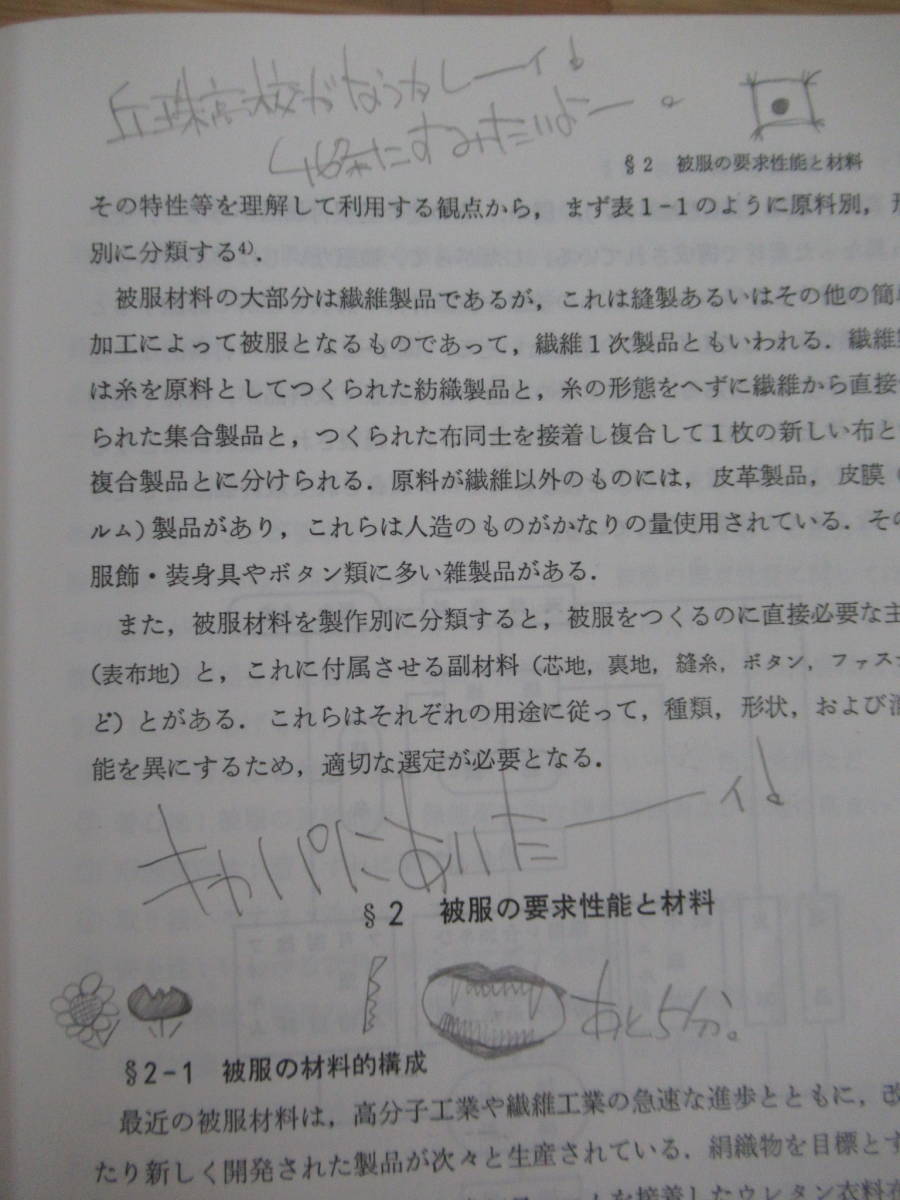 丘珠高校がなつかしーイ!
4%条にすみたいよー。
§2 被服の要求性能と材料
その特性等を理解して利用する観点から，まず表1-1のように原料別，形
別に分類する4)．
被服材料の大部分は繊維製品であるが，これは縫製あるいはその他の簡単
加工によって被服となるものであって，繊維1次製品ともいわれる．繊維
は糸を原料としてつくられた紡織製品と，糸の形態をへずに繊維から直接
られた集合製品と，つくられた布同士を接着し複合して1枚の新しい布と
複合製品とに分けられる．原料が繊維以外のものには，皮革製品，皮膜（
ルム）製品があり，これらは人造のものがかなりの量使用されている．その
服飾・装身具やボタン類に多い雑製品がある．
また，被服材料を製作別に分類すると，被服をつくるのに直接必要な主
（表布地）と，これに付属させる副材料（芯地，裏地，縫糸，ボタン，ファス
ど）とがある．これらはそれぞれの用途に従って，種類，形状，および
能を異にするため，適切な選定が必要となる．
キャパにあいたーイ!
§2 被服の要求性能と材料
あと5分。
§2-1 被服の材料的構成
最近の被服材料は，高分子工業や繊維工業の急速な進歩とともに，改
たり新しく開発された製品が次々と生産されている．絹織物を目標とす
を接着したウレタン衣料